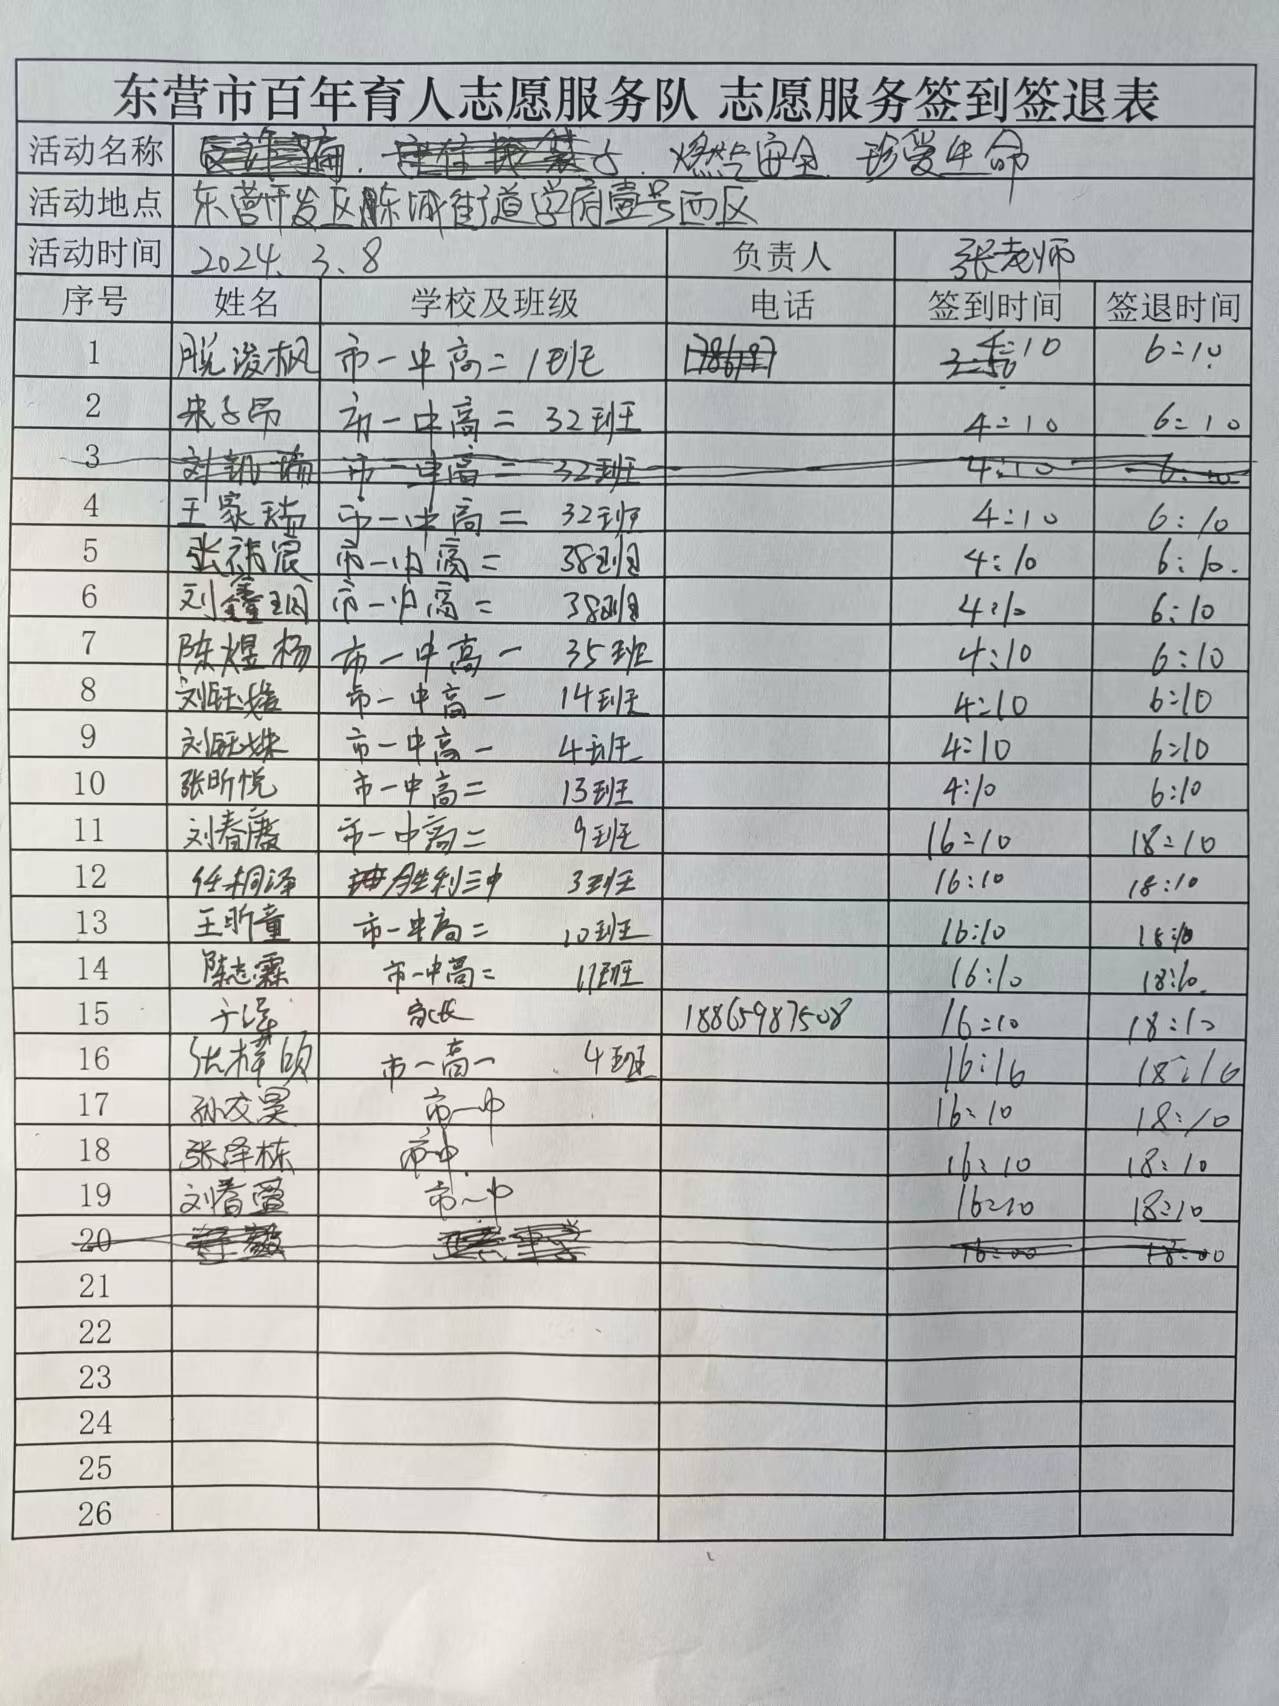 东营市百年育人志愿服务队 志愿服务签到签退表
活动名称 燃气安全 珍爱生命
活动地点 东营开发区胜城街道学府壹号西区
活动时间 2024.3.8 负责人 张老师
序号 姓名 学校及班级 电话 签到时间 签退时间
1 脱浚枫 市一中高二1班 4:10 6:10
2 宋子昂 市一中高二 32班 4:10 6:10
3 刘凯瑞 市一中高二 32班 4:10
4 王家瑞 市一中高二 32班 4:10 6:10
5 张祐宸 市一中高二 38班 4:10 6:10.
6 刘鑫玥 市一中高二 38班 4:10 6:10
7 陈煜杨 市一中高一 35班 4:10 6:10
8 市一中高一 14班 4:10 6:10
9 刘钰姝 市一中高一 4班 4:10 6:10
10 张昕悦 市一中高二 13班 4:10 6:10
11 市一中高二 9班 16:10 18:10
12 任桐泽 胜利三中 3班 16:10 18:10
13 王昕童 市一中高二 10班 16:10 18:10
14 陈志霖 市一中高二 11班 16:10 18:10.
15 家长 18865987508 16:10 18:10
16 市一高一 4班 16:16 18:16
17 市一中 16:10 18:10
18 张泽栋 市中. 16:10 18:10
19 市一中 16:10 18:10
20 16:00 18:00
21
22
23
24
25
26